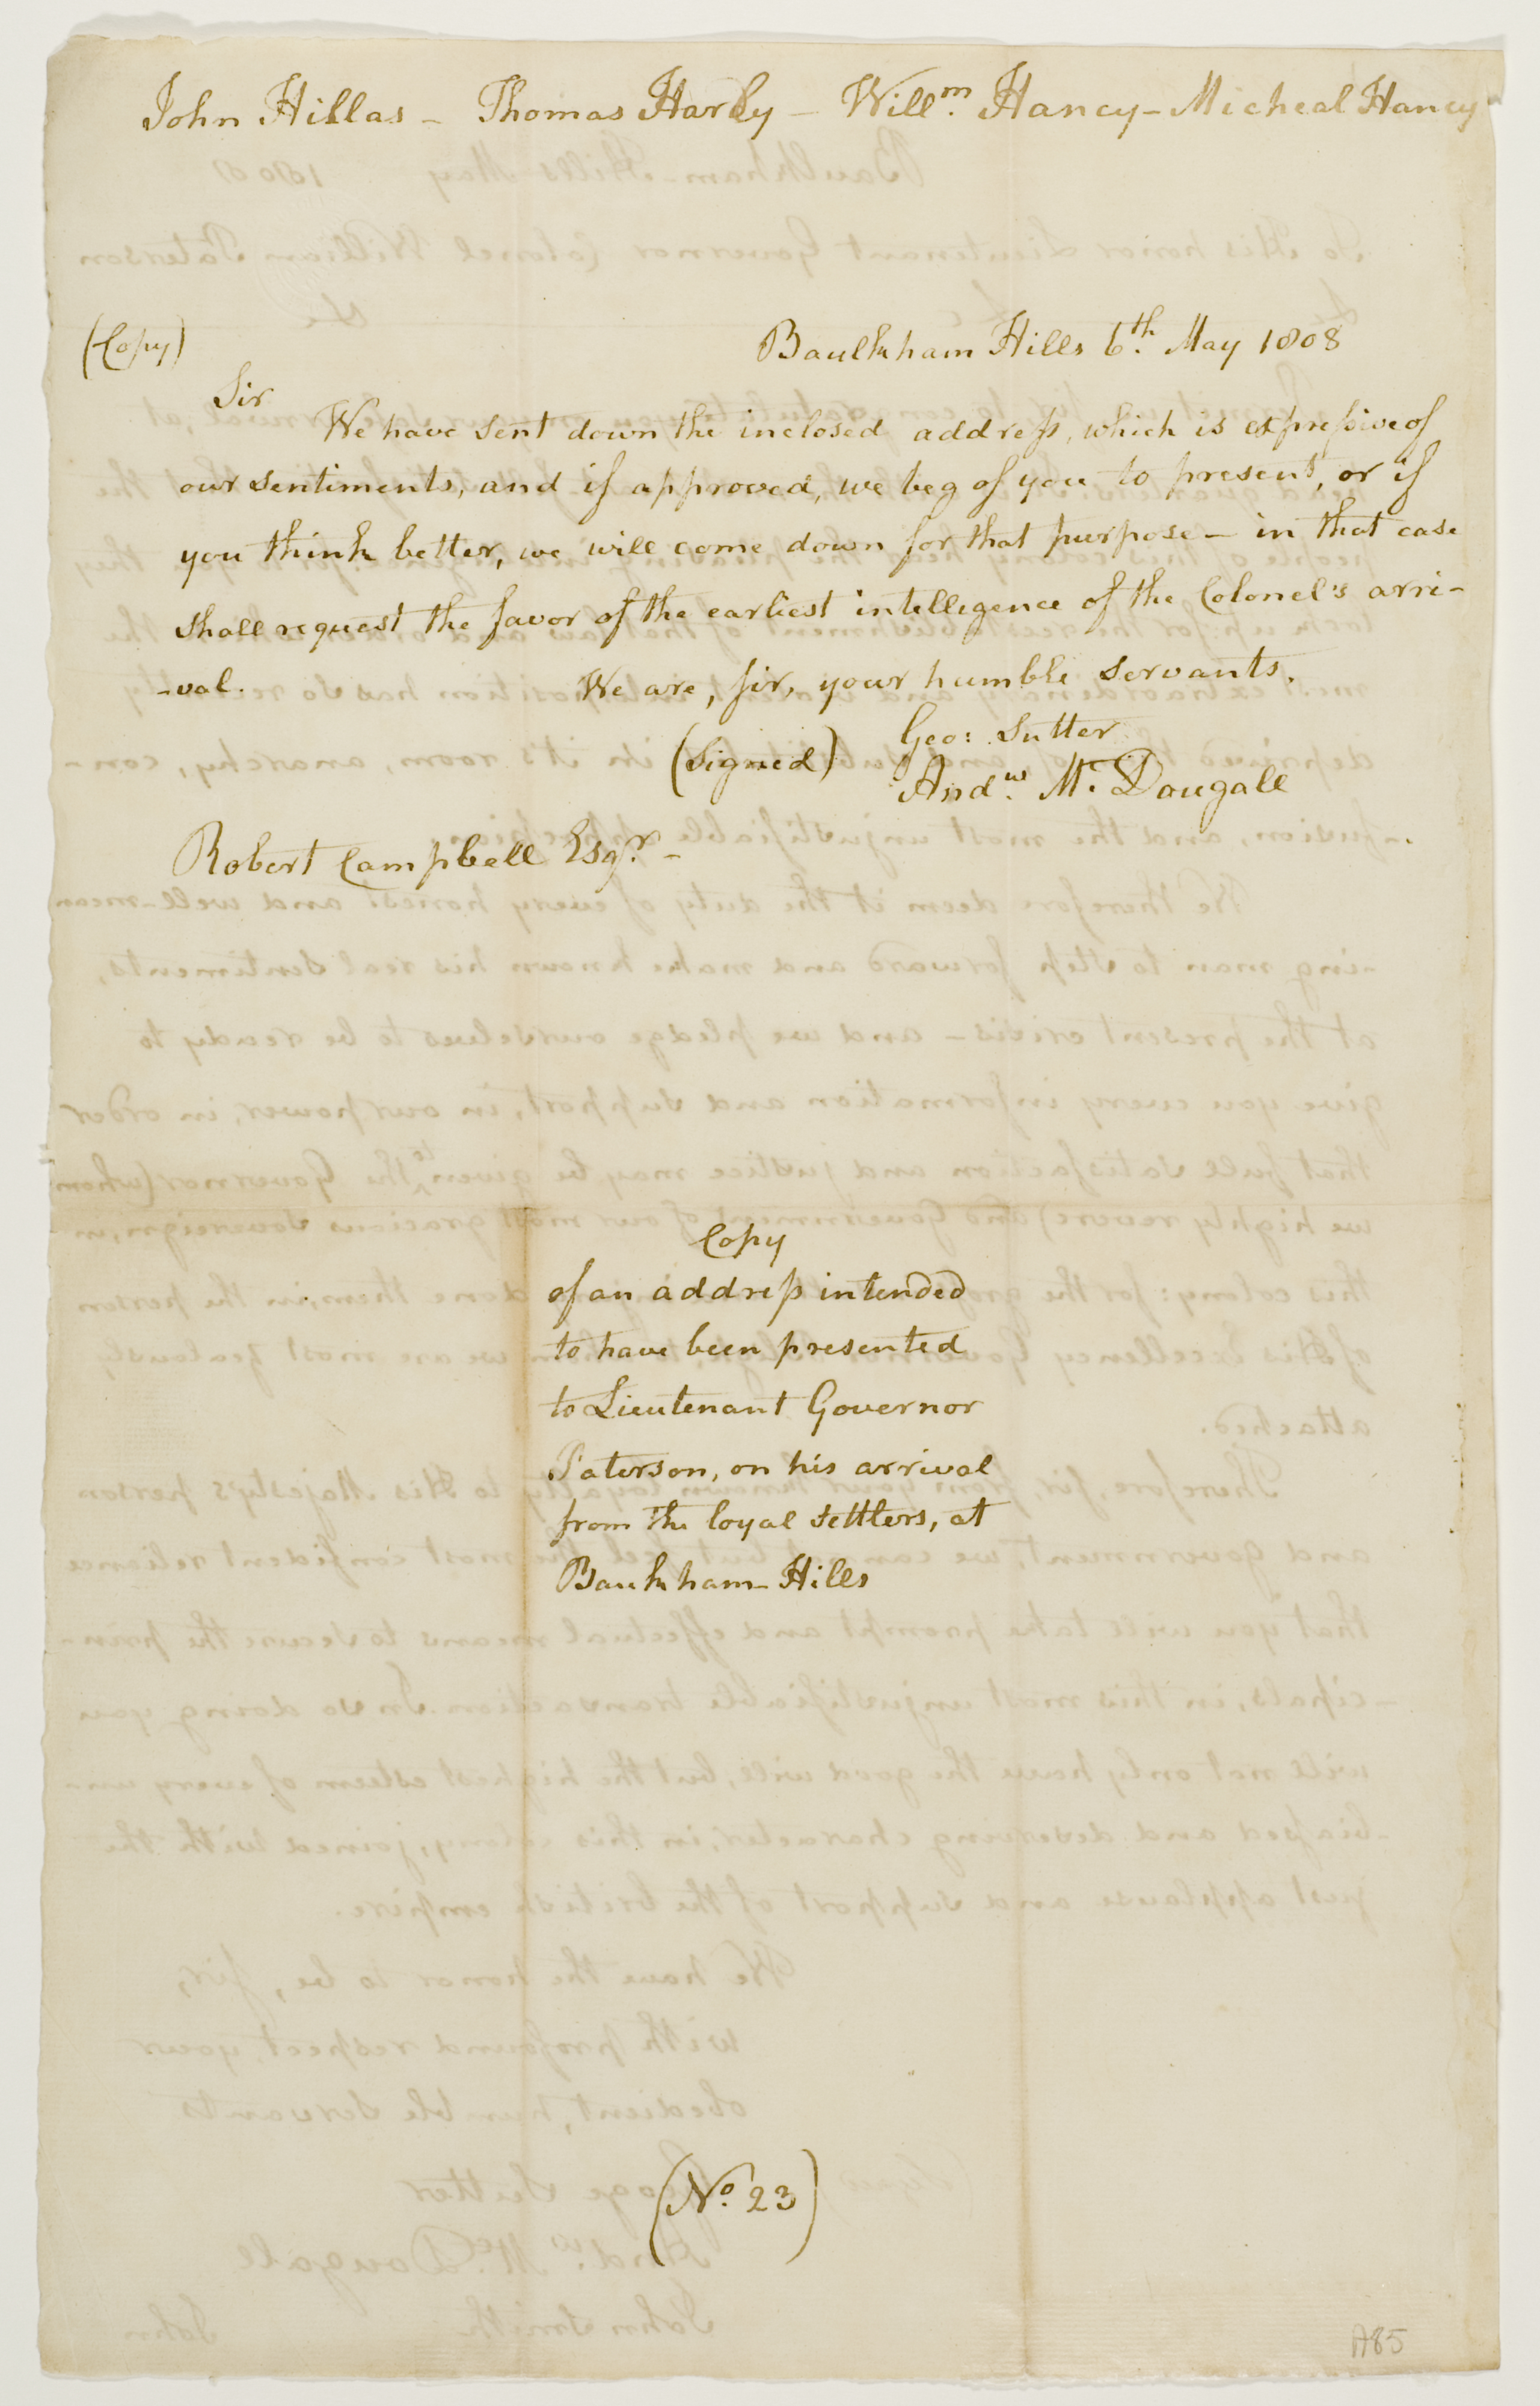 John Hillas – Thomas Harly – Will.m Hancy – Micheal Hancy
(Copy)
Baulkham Hills 6.th May 1808
Sir
We have sent down the inclosed address, which is expressive of
our sentiments, and if approved, we beg of you to present, or if
you think better, we will come down for that purpose – in that case
shall request the favor of the earliest intelligence of the Colonel's arri-
-val. We are, sir, your humble servants.
(Signed) Geo: Sutter
And.w Mc. Dougall
Robert Campbell Esq.r –
Copy
of an address intended
to have been presented
to Lieutenant Governor
Paterson, on his arrival
from the loyal settlers, at
Baukham-Hills
(No. 23)
A85